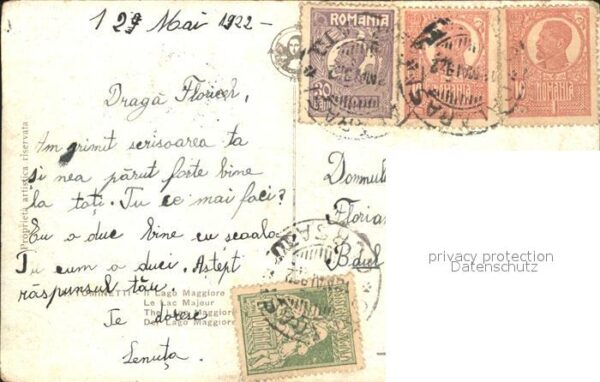 29 Mai 1922 –
Dragă Floricel,
Am primit scrisoarea ta
și nea părut forte bine
la toți. Tu ce mai faci?
Eu o duc bine cu scoala.
Tu cum o duci. Astept
răspunsul tău.
Te doresc
Lenuța
Domnul
Florian
Proprietà artistica riservata
Il Lago Maggiore
Le Lac Majeur
The Lago Maggiore
Der Lago Maggiore
ROMANIA
30 BANI
ROMANIA
ROMANIA
privacy protection
Datenschutz